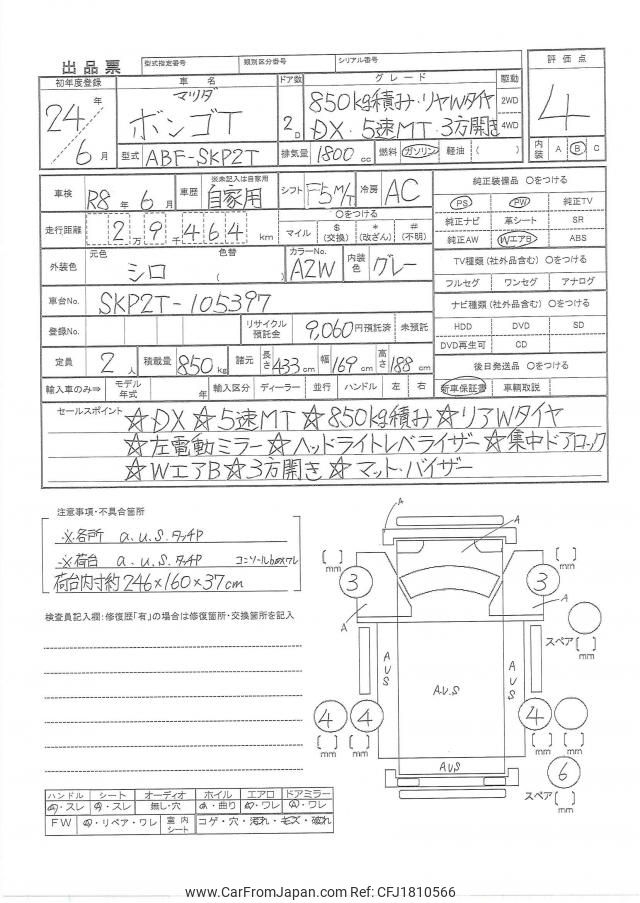 出品票 型式指定番号 類別区分番号 シリアル番号
初年度登録 車名 ドア数 グレード 駆動 評価点
24年 マツダ 850kg積み・リヤWタイヤ 2WD 4
6月 ボンゴT 2D DX・5速MT・3方開き 4WD
型式 ABF-SKP2T 排気量 1800cc 燃料 ガソリン・軽油( ) 内装 A B C
車検 R8年6月 車歴 ※未記入は自家用 自家用 シフト F5M/T 冷房 AC 純正装備品 〇をつける
PS PW 純正TV
走行距離 2万9千464km 〇をつける マイル $(交換) *(改ざん) #(不明) 純正ナビ 革シート SR
純正AW WエアB ABS
外装色 元色 シロ 色替 カラーNo. A2W 内装色 グレー TV種類(社外品含む) 〇をつける
フルセグ ワンセグ アナログ
車台No. SKP2T-105397 ナビ種類(社外品含む) 〇をつける
登録No. リサイクル預託金 9,060円預託済 未預託 HDD DVD SD
DVD再生可 CD
定員 2人 積載量 850kg 諸元 長さ433cm 幅169cm 高さ188cm 後日発送品 〇をつける
輸入車のみ⇒ モデル年式 年 輸入区分 ディーラー 並行 ハンドル 左 右 新車保証書 車輌取説
セールスポイント ☆DX☆5速MT☆850kg積み☆リアWタイヤ
☆左電動ミラー☆ヘッドライトレベライザー☆集中ドアロック
☆WエアB☆3方開き☆マット・バイザー
注意事項・不具合箇所
※各所 a.u.s.タッチP
※荷台 a.u.s.タッチP コンソールboxワレ
荷台内寸約246×160×37cm
検査員記入欄:修復歴「有」の場合は修復箇所・交換箇所を記入
A
A
[ ] mm [ ] mm
3 3
A A
スペア[ ] mm
AUS A.U.S AUS
4 4 4
[ ] mm [ ] mm [ ] mm [ ] mm
AUS
6
スペア[ ] mm
ハンドル シート オーディオ ホイル エアロ ドアミラー
・スレ ・スレ 無し・穴 ・曲り ・ワレ ・ワレ
FW ・リペア・ワレ 室内シート コゲ・穴・汚れ・毛ズ・破れ
www.CarFromJapan.com Ref: CFJ1810566